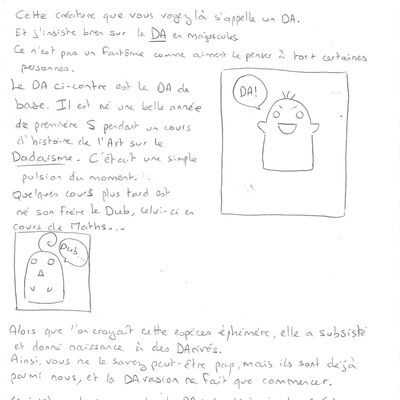 Cette créature que vous voyez là s'appelle un DA.
Et j'insiste bien sur le DA en majuscules.
Ce n'est pas un Fantôme comme aiment le penser à tort certaines
personnes.
Le DA ci-contre est le DA de
base. Il est né une belle année
de première S pendant un cours
d'histoire de l'Art sur le
Dadaïsme. C'était une simple
pulsion du moment.
Quelques cours plus tard est
né son frère le Dub, celui-ci en
cours de Maths...
DA!
Dub...
Alors que l'on croyait cette espèces éphémère, elle a subsisté
et donné naissance à des DArivés.
Ainsi, vous ne le savez peut-être pap, mais ils sont déjà
parmi nous, et la DAvasion ne fait que commencer.